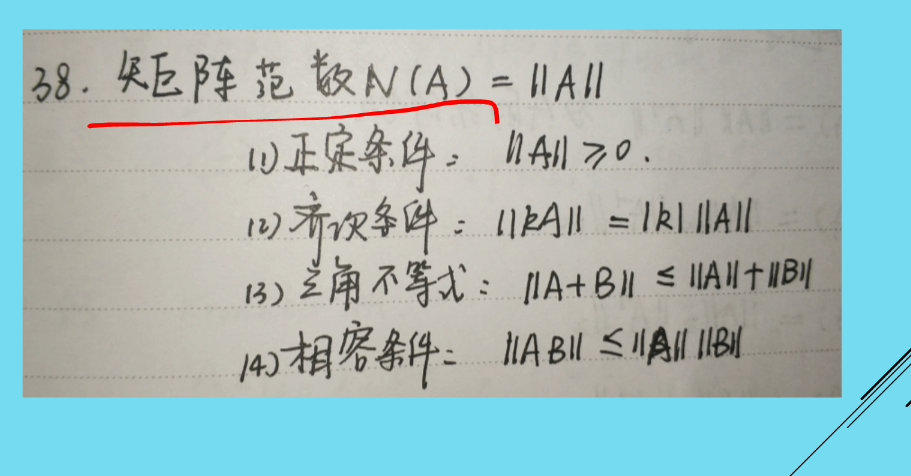 38. 矩阵范数N(A) = ||A||
(1) 正定条件: ||A|| ≥ 0.
(2) 齐次条件: ||kA|| = |k| ||A||
(3) 三角不等式: ||A+B|| ≤ ||A||+||B||
(4) 相容条件: ||AB|| ≤ ||A|| ||B||